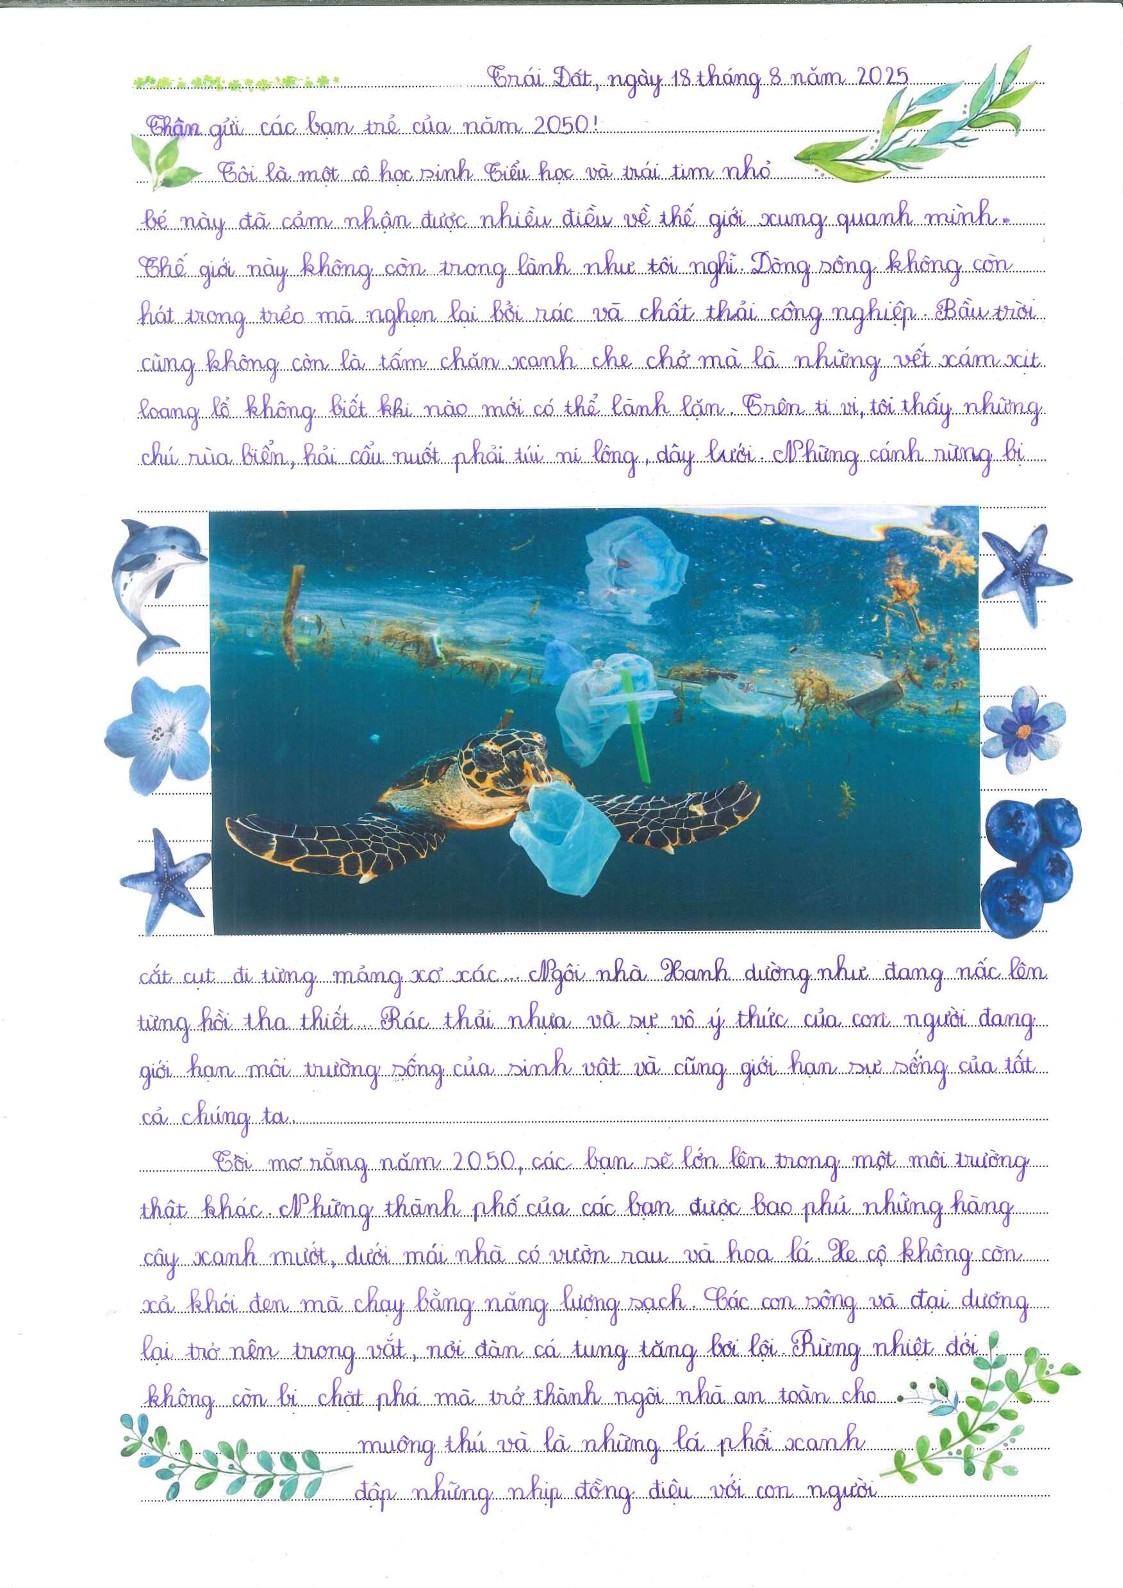 Trái Đất, ngày 18 tháng 8 năm 2025
Thân gửi các bạn trẻ của năm 2050!
Tôi là một cô học sinh Tiểu học và trái tim nhỏ
bé này đã cảm nhận được nhiều điều về thế giới xung quanh mình.
Thế giới này không còn trong lành như tôi nghĩ. Dòng sông không còn
hát trong trẻo mà nghẹn lại bởi rác và chất thải công nghiệp. Bầu trời
cũng không còn là tấm chăn xanh che chở mà là những vết xám xịt
loang lổ không biết khi nào mới có thể lành lặn. Trên ti vi, tôi thấy những
chú rùa biển, hải cẩu nuốt phải túi ni lông, dây lưới. Những cánh rừng bị
cắt cụt đi từng mảng xơ xác... Ngôi nhà Xanh dường như đang nấc lên
từng hồi tha thiết... Rác thải nhựa và sự vô ý thức của con người đang
giới hạn môi trường sống của sinh vật và cũng giới hạn sự sống của tất
cả chúng ta.
Tôi mơ rằng năm 2050, các bạn sẽ lớn lên trong một môi trường
thật khác. Những thành phố của các bạn được bao phủ những hàng
cây xanh mướt, dưới mái nhà có vườn rau và hoa lá. Xe cộ không còn
xả khói đen mà chạy bằng năng lượng sạch. Các con sông và đại dương
lại trở nên trong vắt, nơi đàn cá tung tăng bơi lội. Rừng nhiệt đới
không còn bị chặt phá mà trở thành ngôi nhà an toàn cho
muông thú và là những lá phổi xanh
đập những nhịp đồng điệu với con người